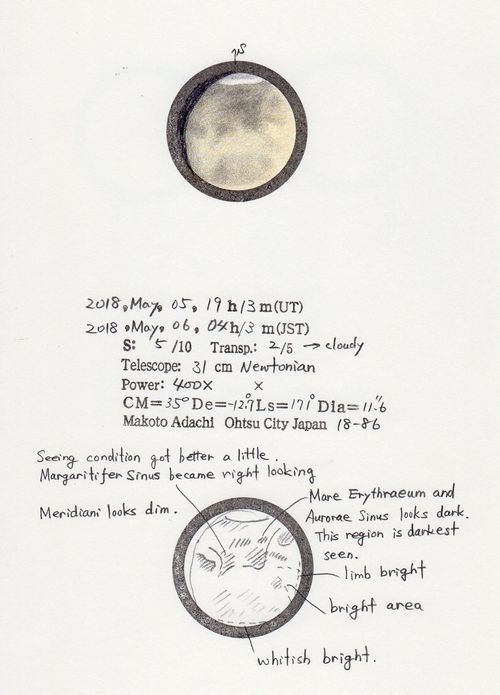 2018, May, 05, 19 h 13 m(UT)
2018, May, 06, 04h 13 m(JST)
S: 5 /10 Transp.: 2/5 → cloudy
Telescope: 31 cm Newtonian
Power: 400× ×
CM=35° De=-12.°7 Ls=171° Dia=11."6
Makoto Adachi Ohtsu City Japan 18-86
Seeing condition got better a little.
Margaritifer Sinus became right looking
Meridiani looks dim.
Mare Erythraeum and
Aurorae Sinus looks dark.
This region is darkest
seen.
limb bright
bright area
whitish bright.